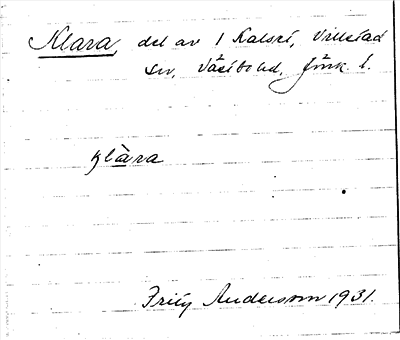 Klara, del av 1 Kalset, Villstad
sn, Västbo hd, Jönk. l.
klàra
Fritz Anderson 1931.